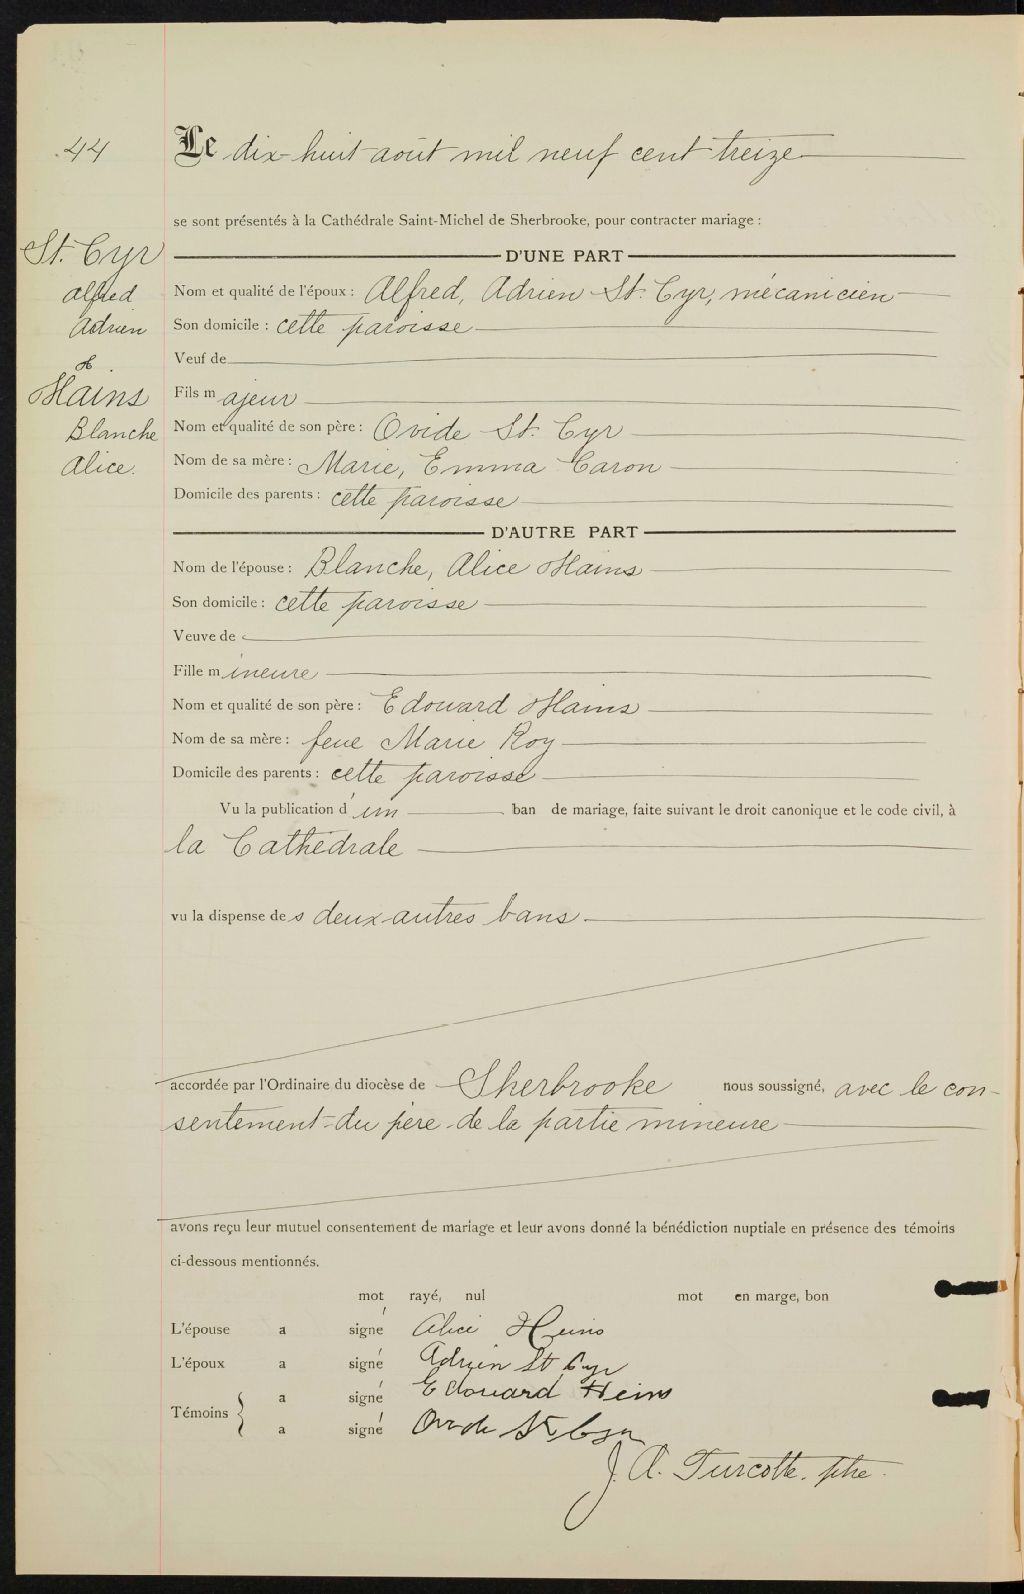 44
Le dix-huit août mil neuf cent treize
se sont présentés à la Cathédrale Saint-Michel de Sherbrooke, pour contracter mariage :
St. Cyr
Alfred
Adrien
&
Hains
Blanche
Alice.
D'UNE PART
Nom et qualité de l'époux : Alfred, Adrien St. Cyr, mécanicien
Son domicile : cette paroisse
Veuf de
Fils majeur
Nom et qualité de son père : Ovide St. Cyr
Nom de sa mère : Marie, Emma Caron
Domicile des parents : cette paroisse
D'AUTRE PART
Nom de l'épouse : Blanche, Alice Hains
Son domicile : cette paroisse
Veuve de
Fille mineure
Nom et qualité de son père : Edouard Hains
Nom de sa mère : feue Marie Roy
Domicile des parents : cette paroisse
Vu la publication d'un ban de mariage, faite suivant le droit canonique et le code civil, à
la Cathédrale
vu la dispense des deux autres bans.
accordée par l'Ordinaire du diocèse de Sherbrooke nous soussigné, avec le con-
sentement du père de la partie mineure
avons reçu leur mutuel consentement de mariage et leur avons donné la bénédiction nuptiale en présence des témoins
ci-dessous mentionnés.
mot rayé, nul mot en marge, bon
L'épouse a signé Alice Heins
L'époux a signé Adrien St Cyr
Témoins a signé Edouard Heins
a signé Ovide St Cyr
J. A. Turcotte, ptre.